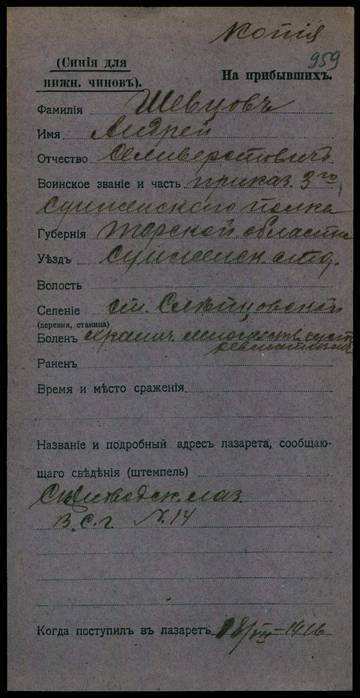 Копія
959
(Синія для нижн. чиновъ).
На прибывшихъ.
Фамилія Шевцовъ
Имя Андрей
Отчество Селиверстовичъ
Воинское званіе и часть приказ. 3го
Сунженскаго полка
Губернія Терской области
Уѣздъ Сунженск. отд.
Волость
Селеніе ст. Слѣпцовской
(деревня, станица)
Боленъ
Раненъ
Время и мѣсто сраженія
Названіе и подробный адресъ лазарета, сообщаю-
щаго свѣдѣнія (штемпель)
лаз.
В. С. Г. № 14
Когда поступилъ въ лазаретъ 18/VII-1916